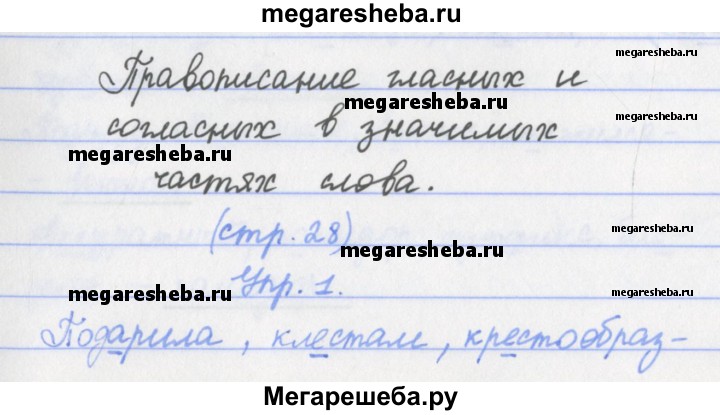 megaresheba.ru
megaresheba.ru
Правописание гласных и
megaresheba.ru
согласных в значимых
megaresheba.ru
megaresheba.ru
частях слова.
(стр. 28)
megaresheba.ru
Упр. 1.
megaresheba.ru
megaresheba.ru
Подарила, клестам, крестообраз-
Мегарешеба.ру